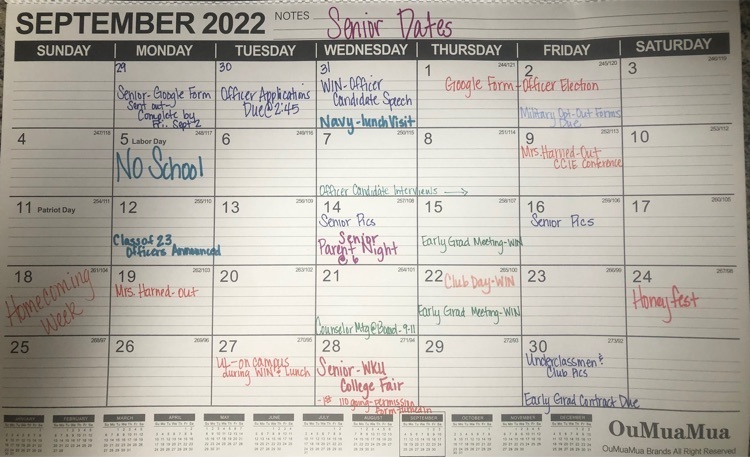 SEPTEMBER 2022
NOTES Senior Dates
SUNDAY MONDAY TUESDAY WEDNESDAY THURSDAY FRIDAY SATURDAY
29
Senior-Google Form
Sent out-
Complete by
Fri. Sept 2
30
Officer Applications
Due @ 2:45
31
WIN-Officer
Candidate Speech
Navy-lunch Visit
1 244/121
Google Form-Officer Election
2 245/120
Military Opt-Out Forms
Due
3 246/119
4 247/118
5 Labor Day 248/117
No School
6 249/116
7 250/115
Officer Candidate Interviews →
8 251/114
9 252/113
Mrs. Harned-Out
CCIE Conference
10
11 Patriot Day 254/111
12 255/110
Class of 23
Officers Announced
13 256/109
14 257/108
Senior Pics
Senior
Parent Night
@ 6
15 258/107
Early Grad Meeting-WIN
16 259/106
Senior Pics
17 260/105
18 261/104
Homecoming
Week
19 262/103
Mrs. Harned-out
20 263/102
21 264/101
Counselor Mtg @ Board-9-11
22 265/100
Club Day-WIN
Early Grad Meeting-WIN
23 266/99
24 267/98
Honeyfest
25 268/97
26 269/96
27 270/95
UL-on campus
during WIN & Lunch
28 271/94
Senior-WKU
College Fair
110 going-permission
form
29 272/93
30 273/92
Underclassmen &
Club Pics
Early Grad Contract Due
JANUARY FEBRUARY MARCH APRIL MAY JUNE JULY AUGUST SEPTEMBER OCTOBER NOVEMBER DECEMBER
OuMuaMua
OuMuaMua Brands All Right Reserved